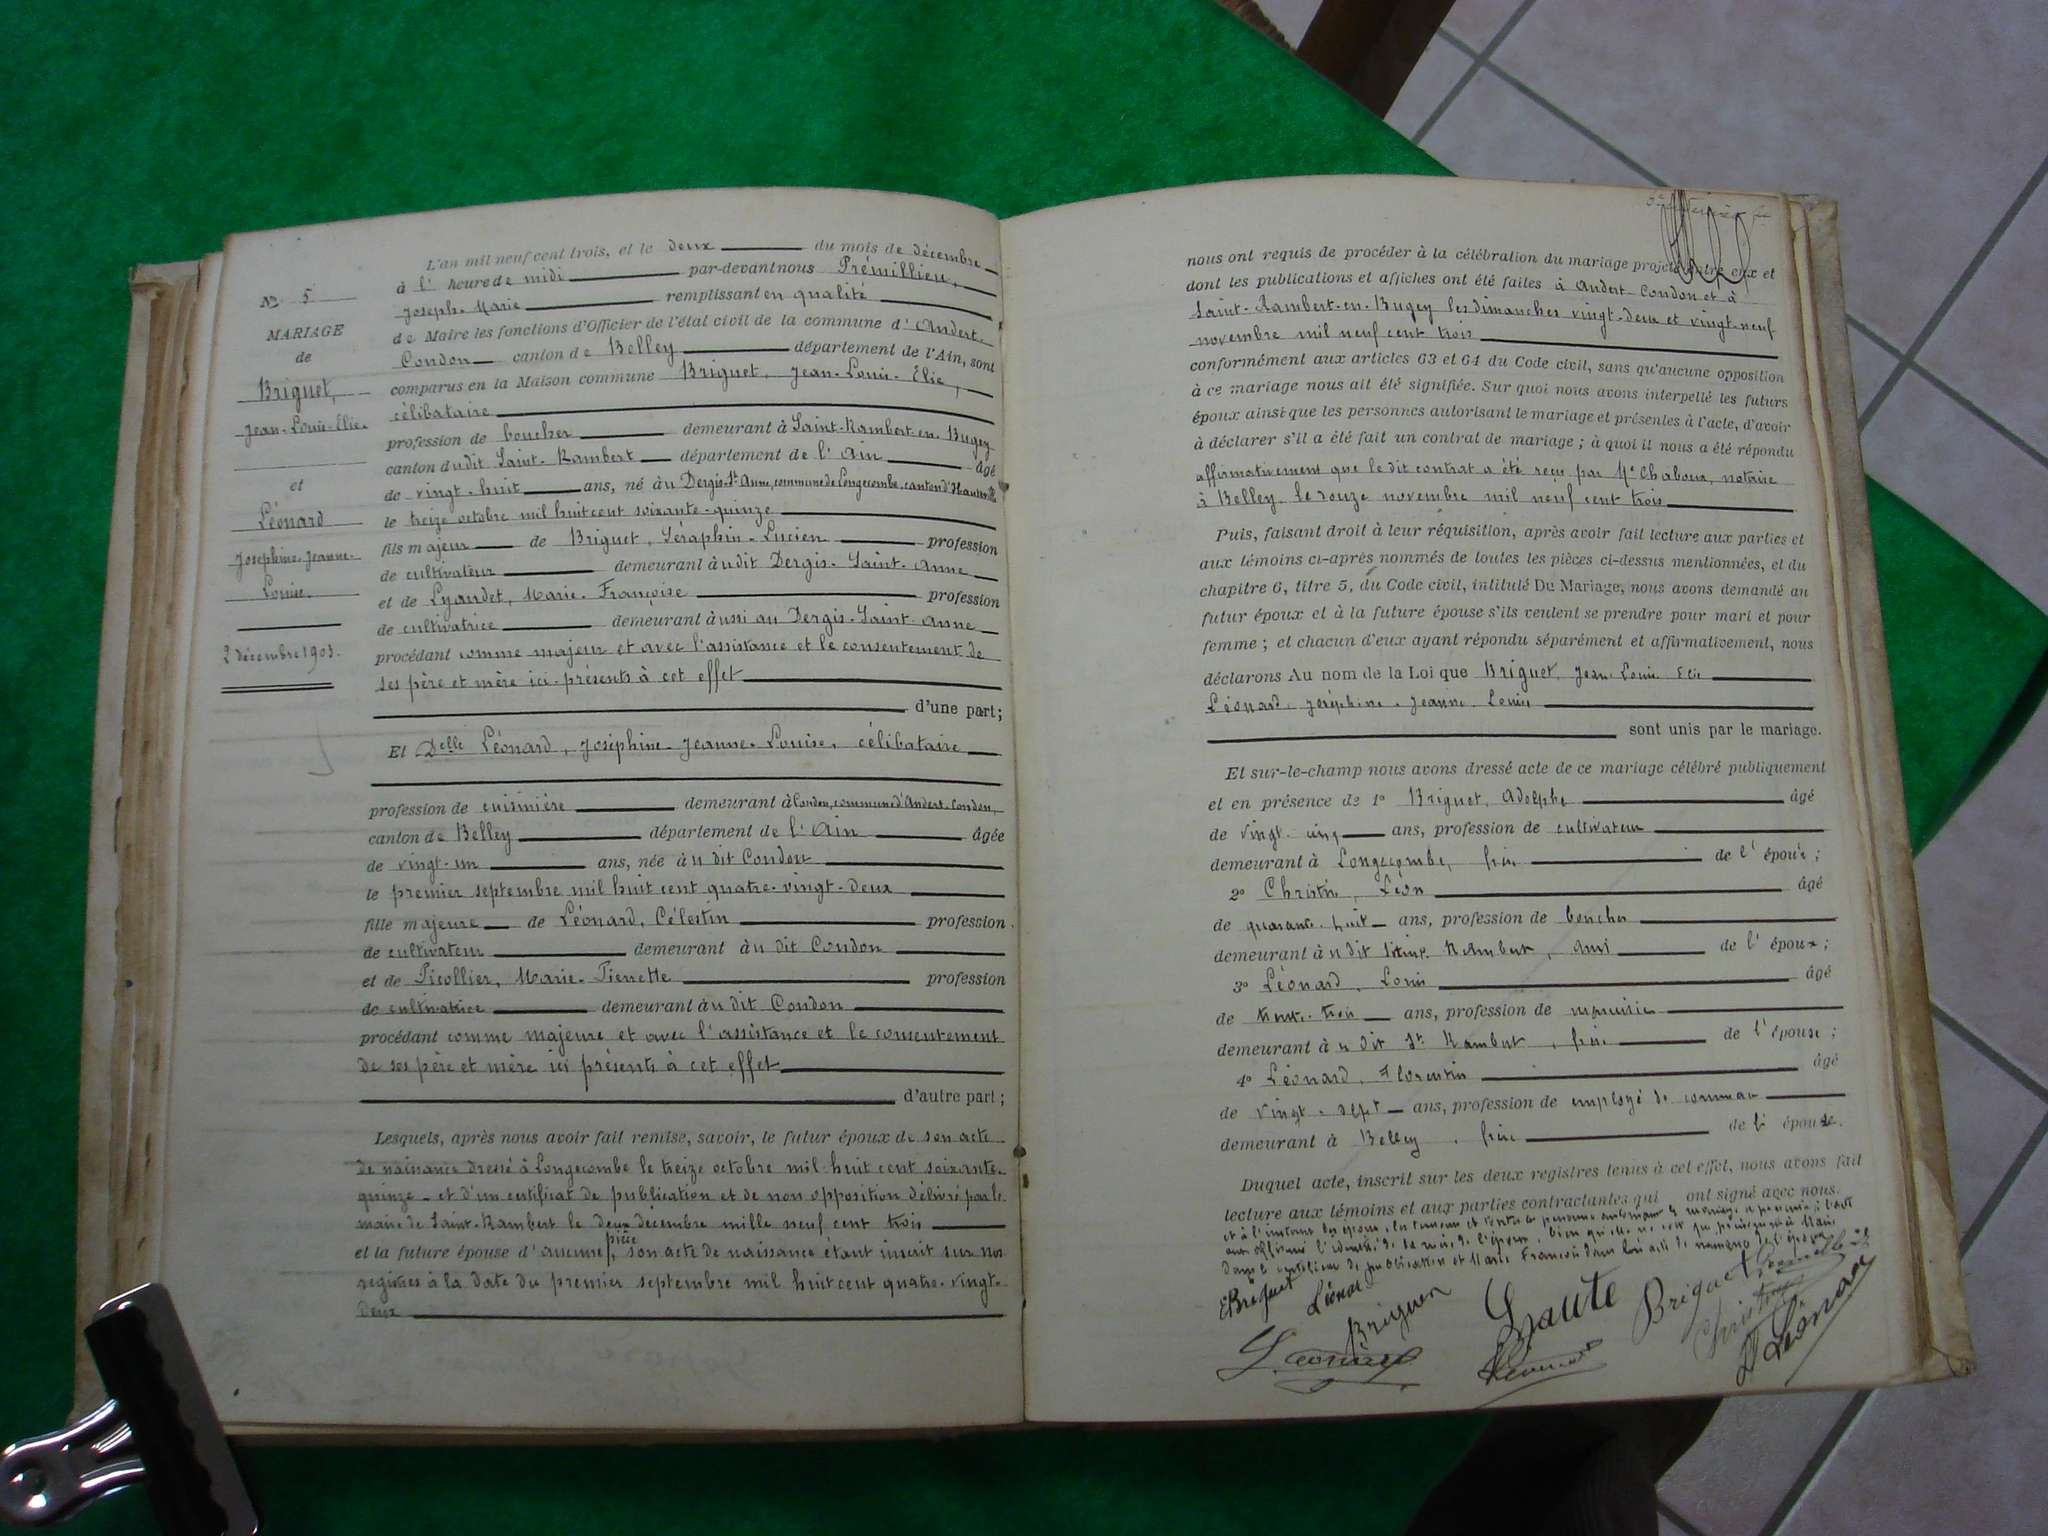 N° 5
MARIAGE
de
Briguet,
Jean-Louis-Elie
et
Léonard
Joséphine-Jeanne-
Louise.
2 décembre 1903.
L'an mil neuf cent trois, et le deux du mois de décembre
à l'heure de midi par-devant nous Prémillieu,
Joseph-Marie remplissant en qualité
de Maire les fonctions d'Officier de l'état civil de la commune d'Andert-
Condon canton de Belley département de l'Ain, sont
comparus en la Maison commune Briguet, Jean-Louis-Elie,
célibataire
profession de boucher demeurant à Saint-Rambert-en-Bugey
canton du dit Saint-Rambert département de l'Ain âgé
de vingt-huit ans, né au Dergis-St Anne, commune de Longecombe, canton d'Hauteville
le treize octobre mil huit cent soixante-quinze
fils majeur de Briguet, Séraphin-Lucien profession
de cultivateur demeurant au dit Dergis-Saint-Anne
et de Lyaudet, Marie-Françoise profession
de cultivatrice demeurant aussi au Dergis-Saint-Anne
procédant comme majeur et avec l'assistance et le consentement de
ses père et mère ici présents à cet effet
d'une part;
Et Delle Léonard, Joséphine-Jeanne-Louise, célibataire
profession de cuisinière demeurant à Condon, commune d'Andert-Condon,
canton de Belley département de l'Ain âgée
de vingt-un ans, née au dit Condon
le premier septembre mil huit cent quatre-vingt-deux
fille majeure de Léonard, Célestin profession
de cultivateur demeurant au dit Condon
et de Picollier, Marie-Pierrette profession
de cultivatrice demeurant au dit Condon
procédant comme majeure et avec l'assistance et le consentement
de ses père et mère ici présents à cet effet
d'autre part;
Lesquels, après nous avoir fait remise, savoir, le futur époux de son acte
de naissance dressé à Longecombe le treize octobre mil huit cent soixante-
quinze - et d'un certificat de publication et de non opposition délivré par le
maire de Saint-Rambert le deux décembre mille neuf cent trois
pièce
et la future épouse d'aucune, son acte de naissance étant inscrit sur nos
registres à la date du premier septembre mil huit cent quatre-vingt-
deux
nous ont requis de procéder à la célébration du mariage projeté entre eux et
dont les publications et affiches ont été faites à Andert-Condon et à
Saint-Rambert-en-Bugey les dimanches vingt-deux et vingt-neuf
novembre mil neuf cent trois
conformément aux articles 63 et 64 du Code civil, sans qu'aucune opposition
à ce mariage nous ait été signifiée. Sur quoi nous avons interpellé les futurs
époux ainsi que les personnes autorisant le mariage et présentes à l'acte, d'avoir
à déclarer s'il a été fait un contrat de mariage; à quoi il nous a été répondu
affirmativement que le dit contrat a été reçu par Me Chaboux, notaire
à Belley, le novembre mil neuf cent trois
Puis, faisant droit à leur réquisition, après avoir fait lecture aux parties et
aux témoins ci-après nommés de toutes les pièces ci-dessus mentionnées, et du
chapitre 6, titre 5, du Code civil, intitulé Du Mariage, nous avons demandé au
futur époux et à la future épouse s'ils veulent se prendre pour mari et pour
femme; et chacun d'eux ayant répondu séparément et affirmativement, nous
déclarons Au nom de la Loi que Briguet, Jean Louis Elie
Léonard, Joséphine-Jeanne-Louise
sont unis par le mariage.
Et sur-le-champ nous avons dressé acte de ce mariage célébré publiquement
et en présence de 1° Briguet, Adolphe âgé
de vingt-cinq ans, profession de cultivateur
demeurant à Longecombe, frère de l'époux;
2° Christin, Léon âgé
de quarante-huit ans, profession de boucher
demeurant au dit Saint Rambert, ami de l'époux;
3° Léonard, Louis âgé
de trente-trois ans, profession de menuisier
demeurant au dit St Rambert, frère de l'épouse;
4° Léonard, Florentin âgé
de vingt-sept ans, profession de employé de commerce
demeurant à Belley, frère de l'épouse.
Duquel acte, inscrit sur les deux registres tenus à cet effet, nous avons fait
lecture aux témoins et aux parties contractantes qui ont signé avec nous.
et à l'instant les époux, les témoins et
l'identité de la mère de l'époux, bien qu'elle ne soit
dans le certificat de publication et Marie Françoise dans
EBriguet Léonard
Briguet
Briguet
Christin
Léonard